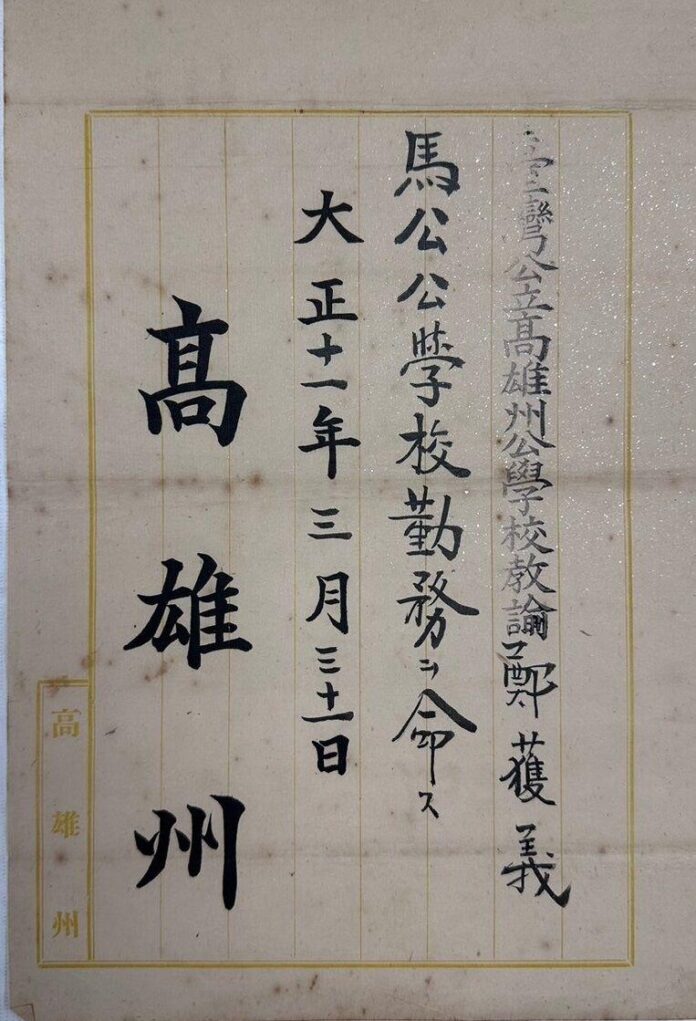 臺灣公立高雄州公學校教諭 鄭獲義
馬公公學校勤務ヲ命ス
大正十一年三月三十一日
高雄州
高雄州